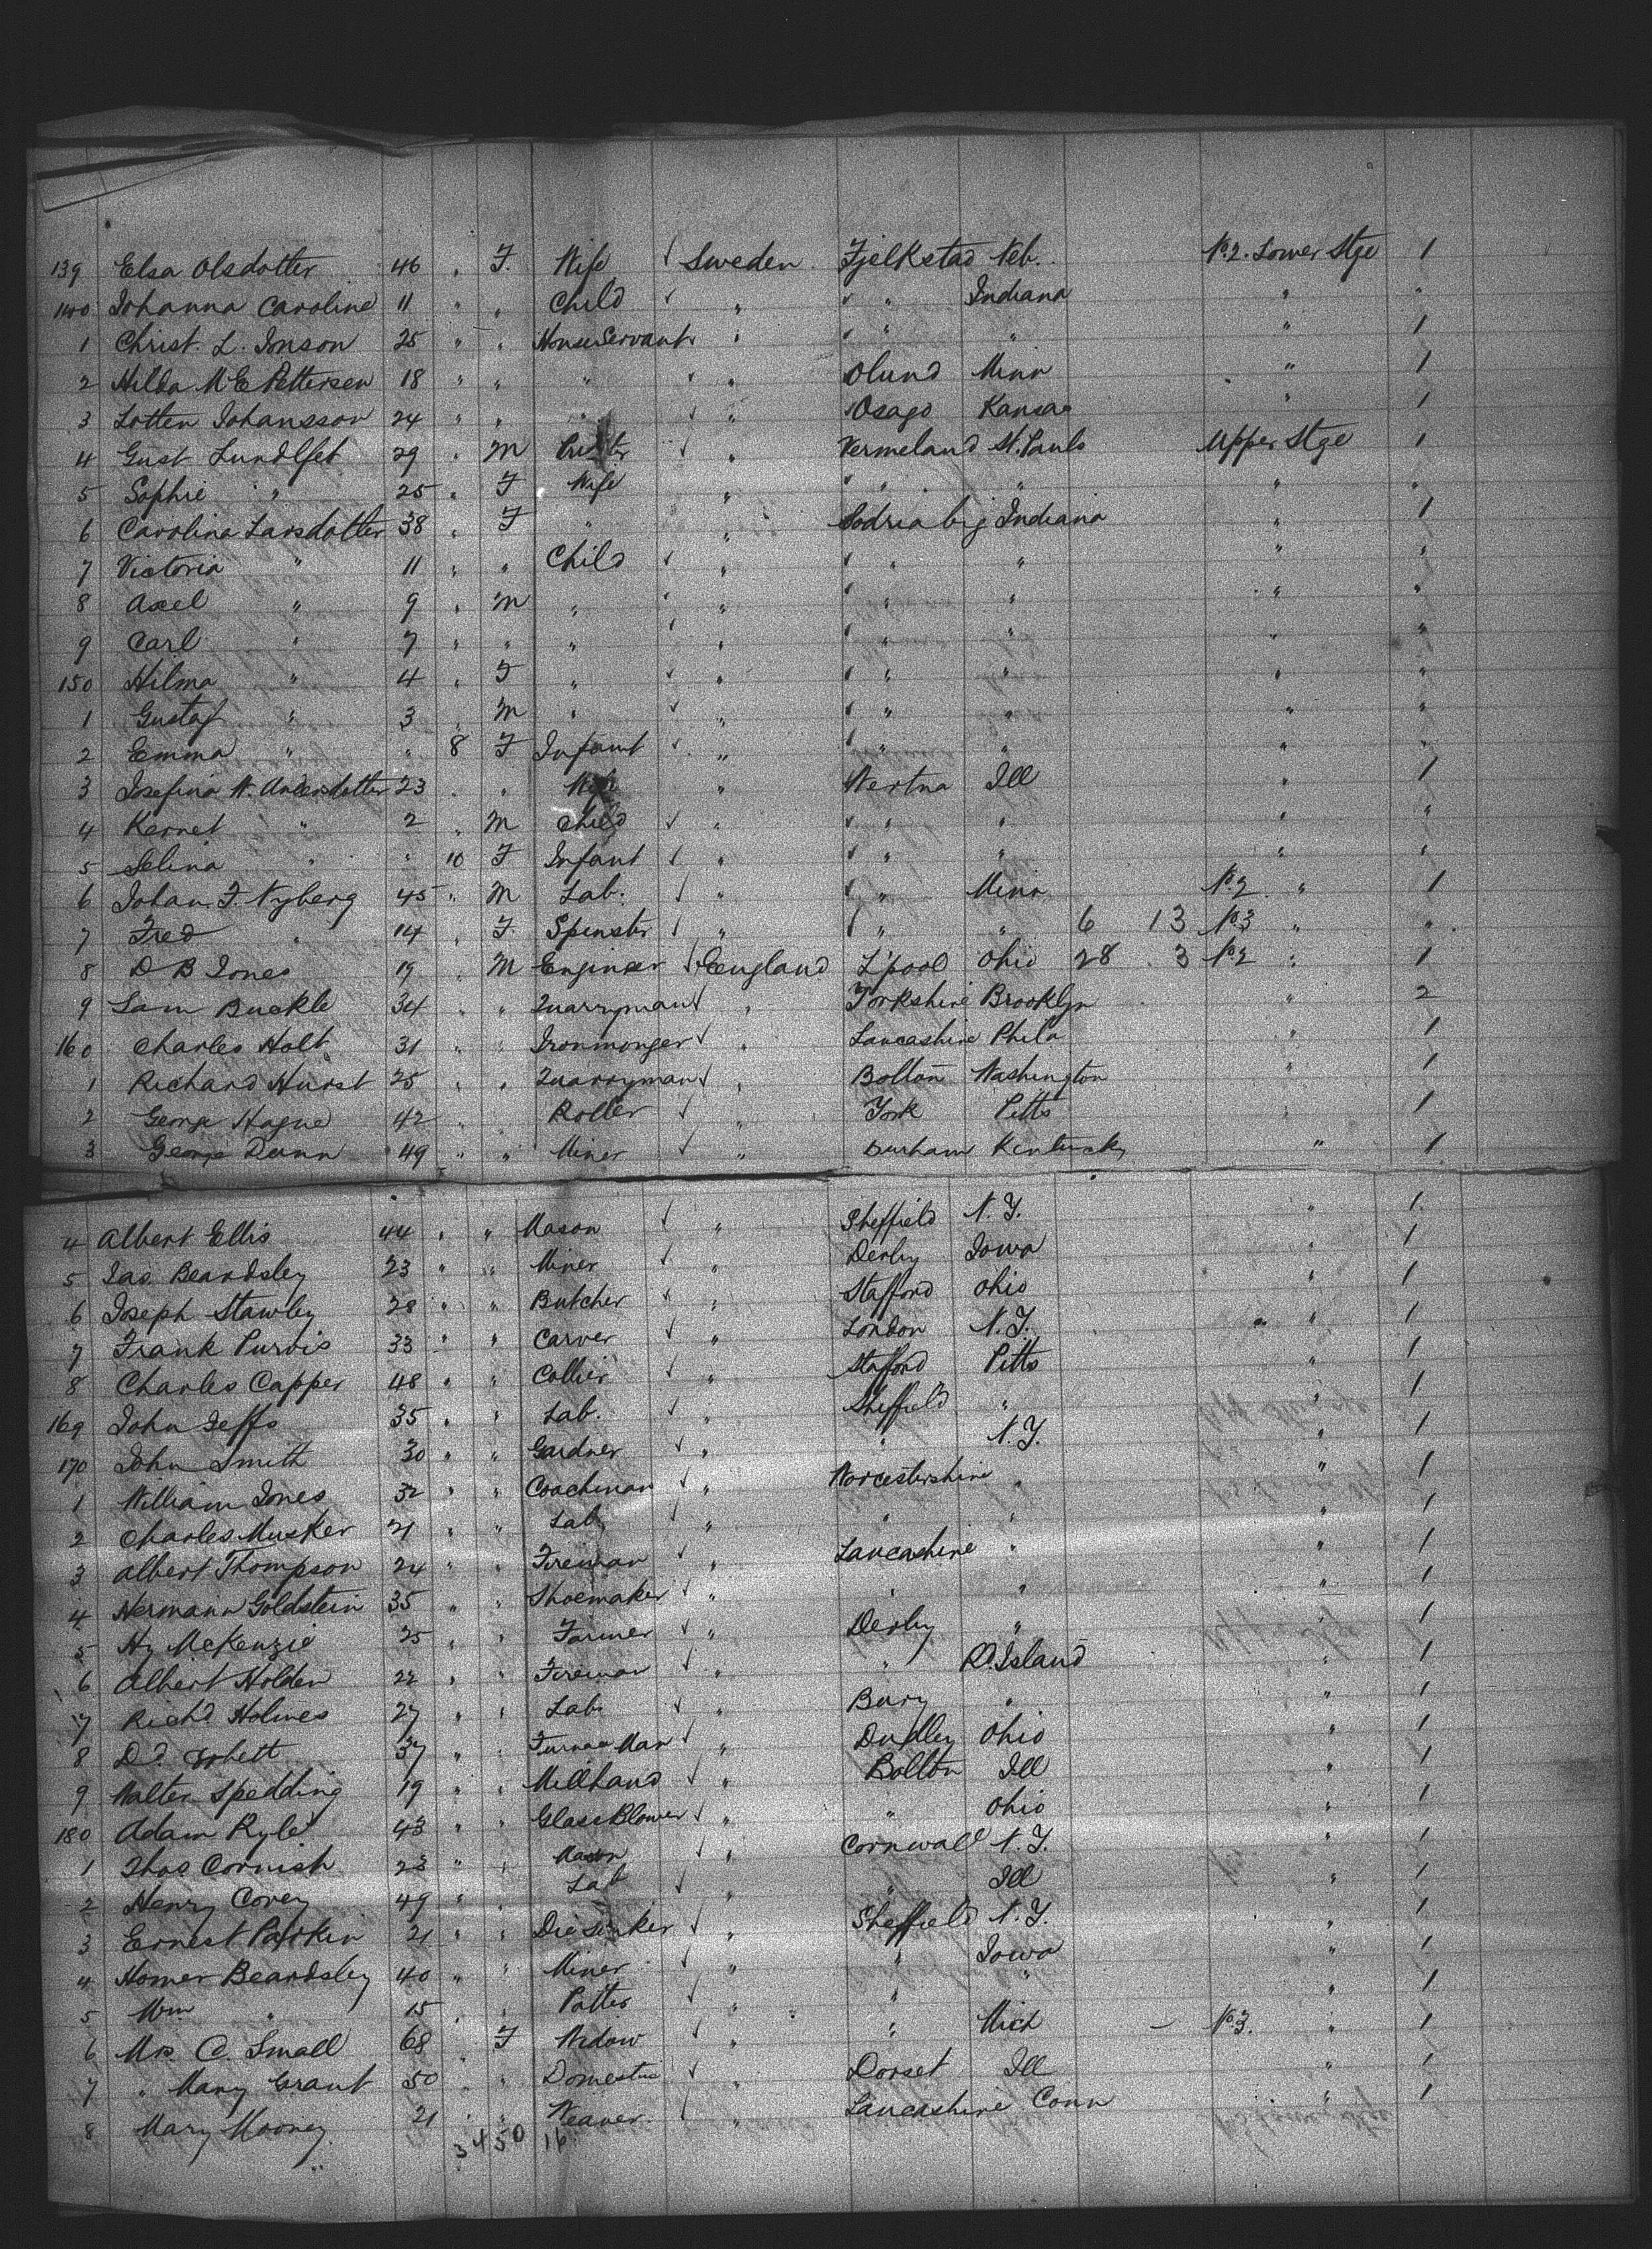 139 Elsa Olsdotter 46 " F. Wife ✓ Sweden Fjelkstad Neb. No. 2. Lower Stge 1
140 Johanna Caroline 11 " " Child ✓ " " Indiana " "
1 Christ. L. Jonson 25 " " House Servant " " " " 1
2 Hilda M E Pettersen 18 " " " " Olund Minn " 1
3 Lotten Johansson 24 " " " ✓ " Osago Kansas " 1
4 Gust Lundlfet 29 " M ✓ " Vermeland St. Pauls Upper Stge 1
5 Sophie " 25 " F Wife " " " " "
6 Carolina Larsdotter 38 " F " " Indiana " 1
7 Victoria " 11 " " Child ✓ " " " " "
8 Axel " 9 " M " " " " " "
9 Carl " 7 " " " " " " " "
150 Hilma " 4 " F " " " " " "
1 Gustaf " 3 " M " ✓ " " " " "
2 Emma " " 8 F Infant ✓ " " " " "
3 Josefina W. Andersdotter 23 " " Wife " Wertna Ill " 1
4 Kernet " 2 " M Child ✓ " " " " "
5 Selina " " 10 F Infant ✓ " " " " "
6 Johan. F. Nyberg 45 " M Lab. ✓ " " Minn No. 2 " 1
7 Fred " 14 " F. Spinster ✓ " " " 6 13 No. 3 " "
8 D B Jones 19 " M Engineer ✓ England L'pool Ohio 28 . 3 No. 2 " 1
9 Sam Buckle 34 " " Quarryman ✓ " Yorkshire Brooklyn " 2
160 Charles Holt 31 " " Ironmonger ✓ " Lancashire Phila " 1
1 Richard Hurst 25 " " Quarryman ✓ " Bolton Washington " 1
2 George Hague 42 " Roller ✓ " York Pitts " 1
3 George Dunn 49 " " Miner ✓ " Durham Kentucky " 1
4 Albert Ellis 44 " " Mason ✓ " Sheffield N. Y. " 1
5 Jas. Beardsley 23 " " Miner ✓ " Derby Iowa " 1
6 Joseph Stawley 28 " " Butcher ✓ " Stafford Ohio " 1
7 Frank Purvis 33 " " Carver ✓ " London N. Y. " 1
8 Charles Capper 48 " " Collier ✓ " Stafford Pitts " 1
169 John Jeffs 35 " " Lab. ✓ " Sheffield " " 1
170 John Smith 30 " " Gardner ✓ " " N. Y. " 1
1 William Jones 32 " " Coachman ✓ " Worcestershire " " 1
2 Charles Musker 21 " " Lab ✓ " " " " 1
3 Albert Thompson 24 " " Fireman ✓ " Lancashire " " 1
4 Hermann Goldstein 35 " " Shoemaker ✓ " " " " 1
5 Hy McKenzie 25 " " Farmer ✓ " Derby " " 1
6 Albert Holden 22 " " Fireman ✓ " " R. Island " 1
7 Richd. Holmes 27 " " Lab. ✓ " Bury " " 1
8 Dd. 37 " " Furnace Man ✓ " Dudley Ohio " 1
9 Walter Spedding 19 " " Millhand ✓ " Bolton Ill " 1
180 Adam Ryle 43 " " Glass Blower ✓ " " Ohio " 1
1 Thos Cornish 23 " " Mason ✓ " Cornwall N. Y. " 1
2 Henry Corey 49 " " Lab ✓ " " Ill " 1
3 Ernest Parkin 21 " " Die Sinker ✓ " Sheffield N. Y. " 1
4 Homer Beardsley 40 " " Miner ✓ " " Iowa " 1
5 Wm " 15 " " Potter ✓ " " " " 1
6 Mrs. C. Small 68 " F Widow ✓ " " Mich – No. 3. " 1
7 " Mary Grant 50 " " Domestic ✓ " Dorset Ill " 1
8 Mary Mooney 21 " " Weaver ✓ " Lancashire Conn " 1
3 4 50 16